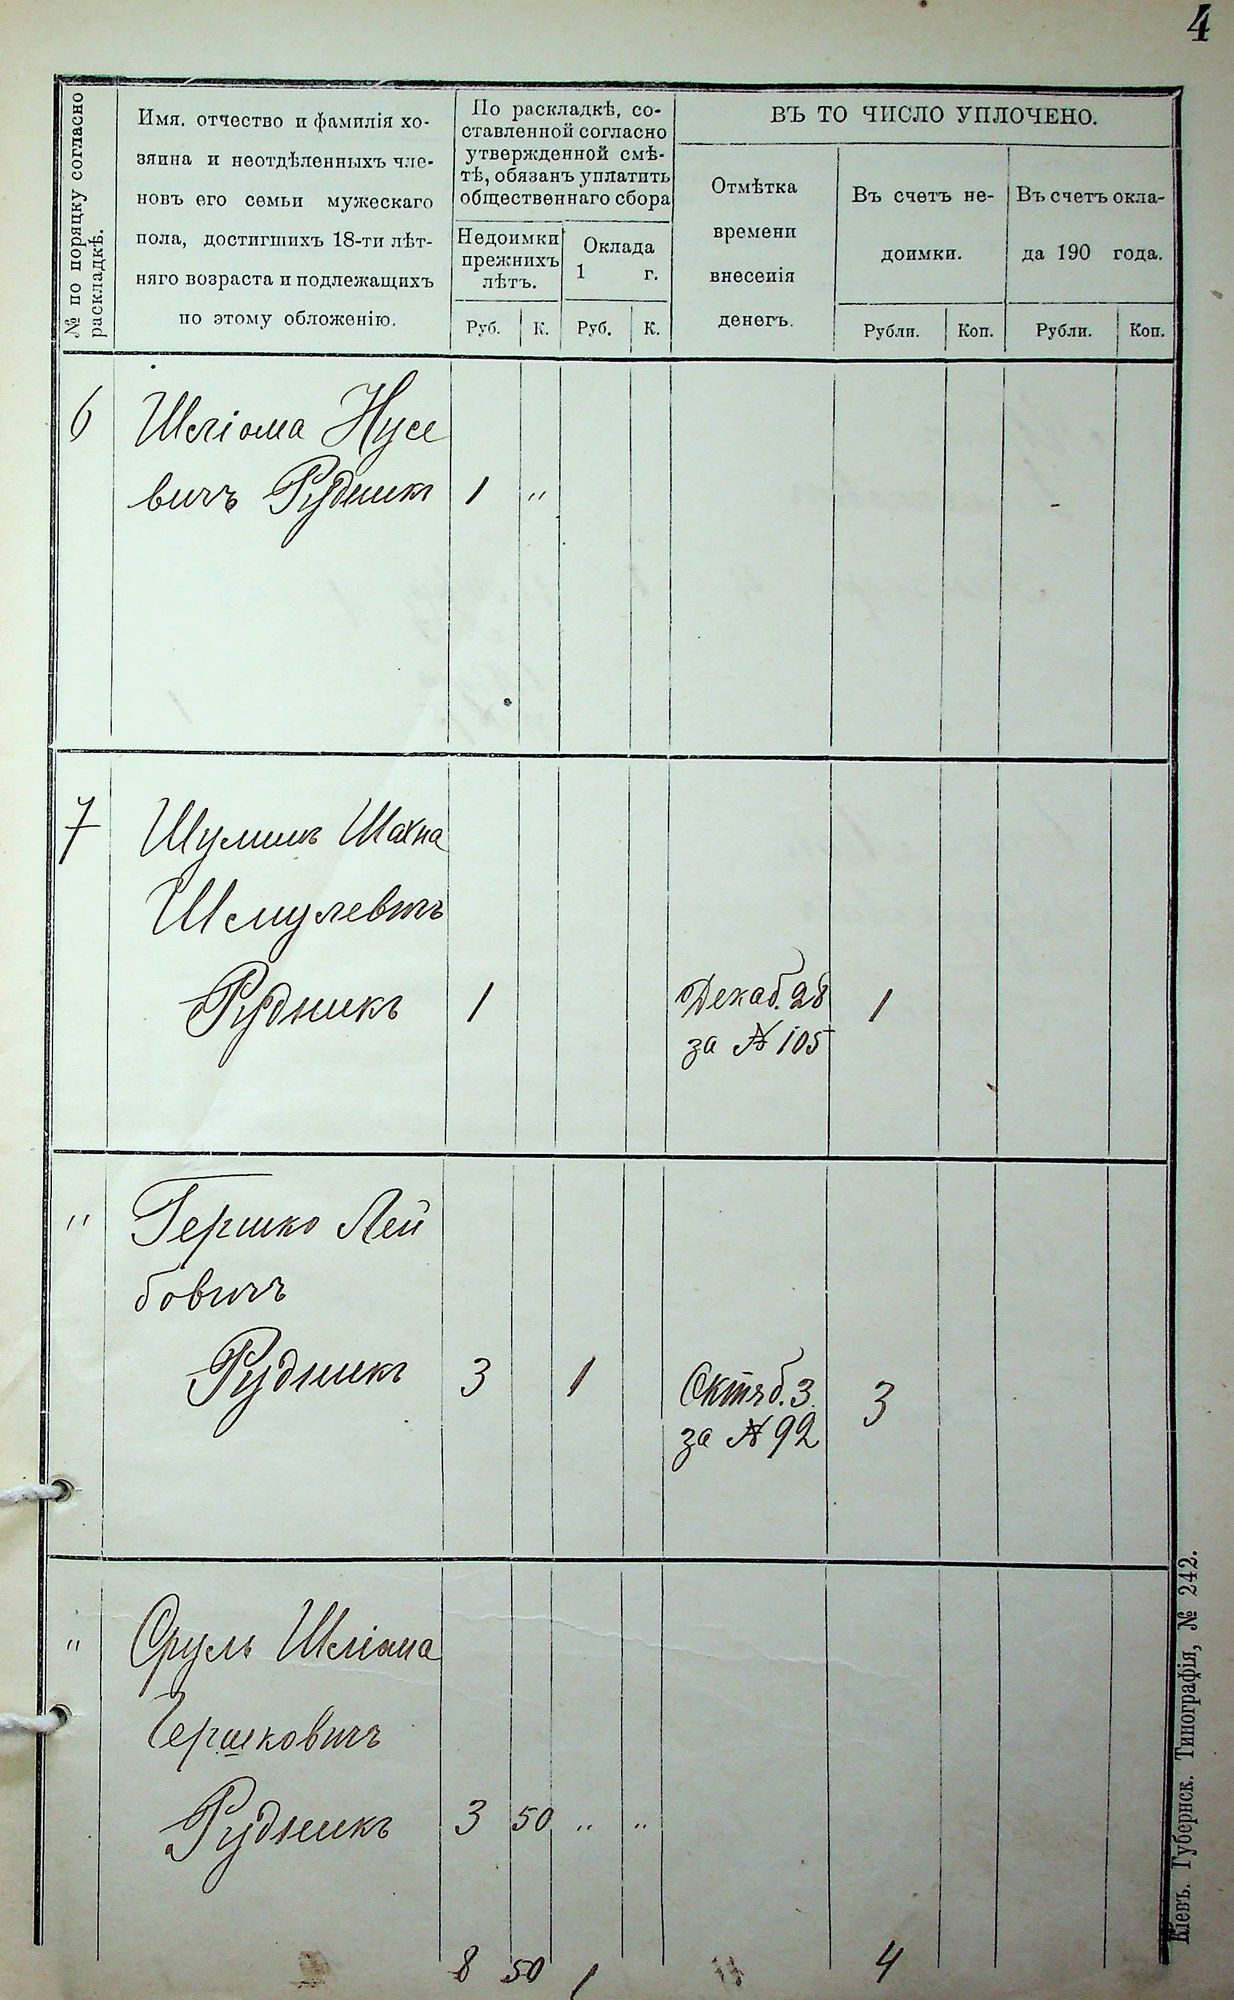 4
№ по поряцку согласно
раскладкѣ.
Имя. отчество и фамилія хо-
зяина и неотдѣленныхъ чле-
новъ его семьи мужескаго
пола, достигшихъ 18-ти лѣт-
няго возраста и подлежащихъ
по этому обложенію.
По раскладкѣ, со-
ставленной согласно
утвержденной смѣ-
тѣ, обязанъ уплатить
общественнаго сбора
Недоимки
прежнихъ
лѣтъ.
Оклада
1 г.
Руб. К. Руб. К.
ВЪ ТО ЧИСЛО УПЛОЧЕНО.
Отмѣтка
времени
внесенія
денегъ.
Въ счетъ не-
доимки.
Въ счетъ окла-
да 190 года.
Рубли. Коп. Рубли. Коп.
6 Шліома Нусе
вичъ Рудникъ 1 "
7 Шулимъ Шахна
Шмулевичъ
Рудникъ 1 Декаб. 28 1
за № 105
" Гершко Лей
бовичъ
Рудникъ 3 1 Октяб. 3 3
за № 92
" Сруль Шліома
Гершковичъ
Рудникъ 3 50 " "
8 50 1 4
Кіевъ. Губернск. Типографія, № 242.